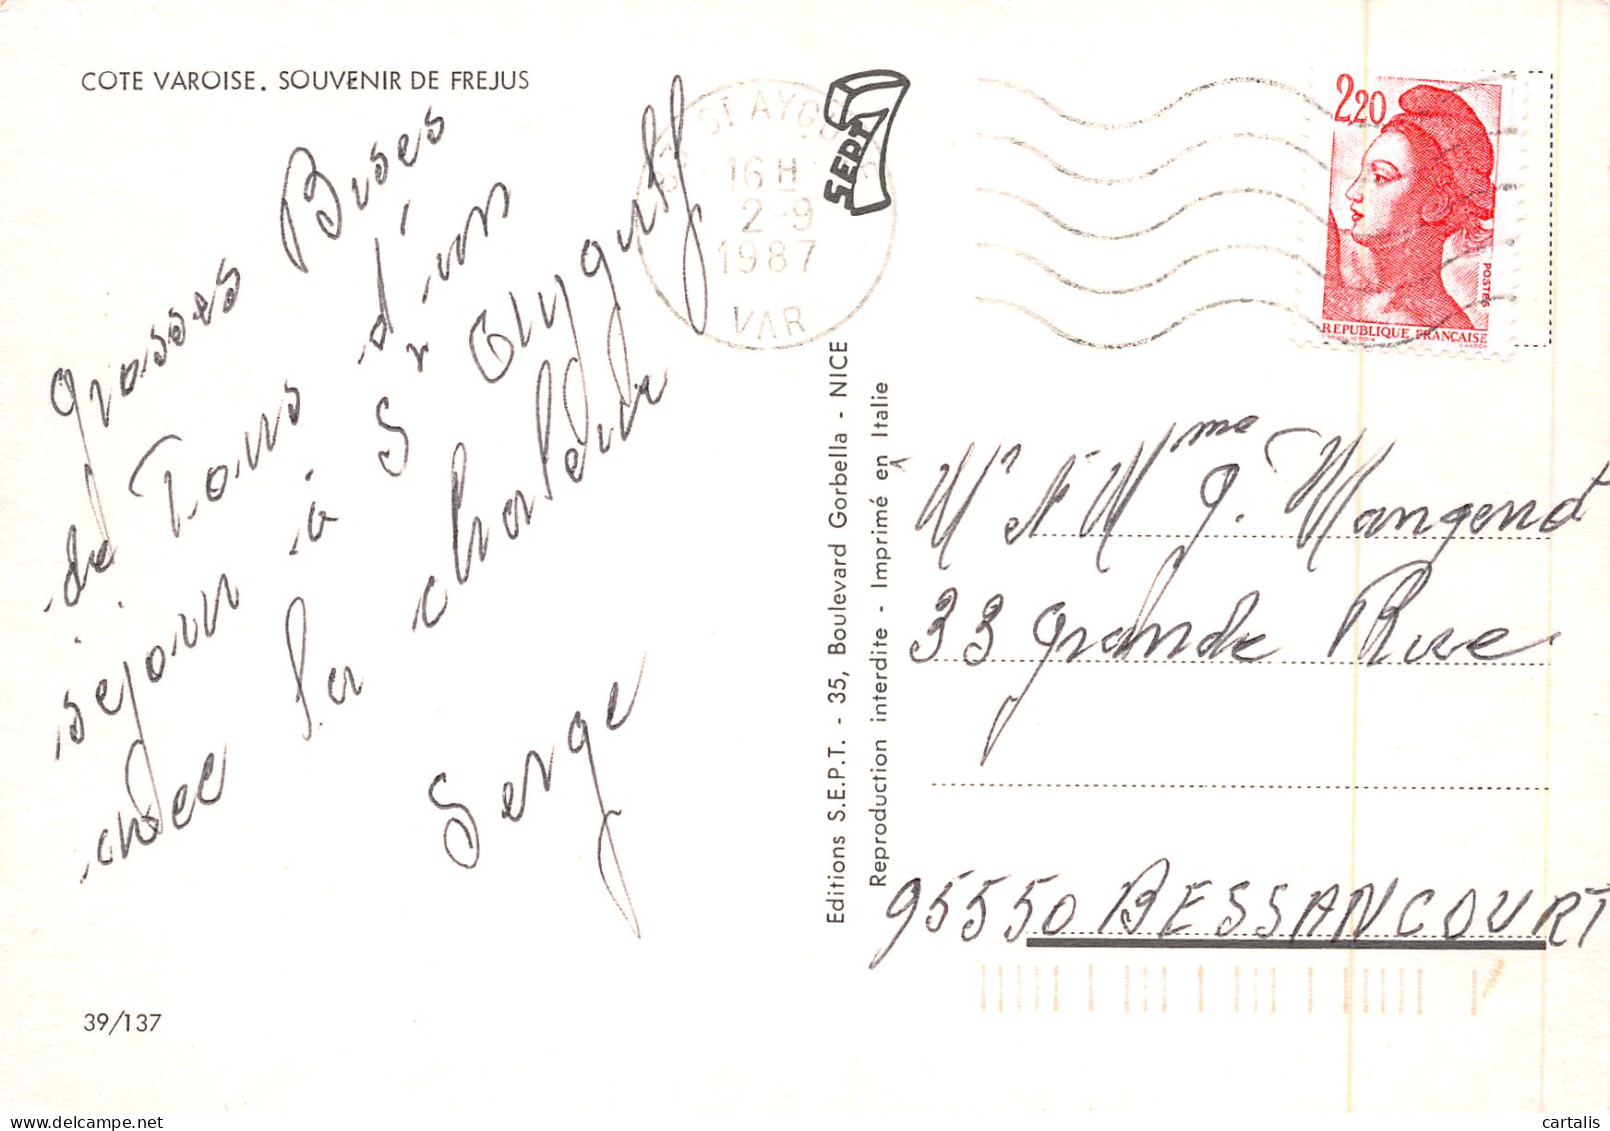 COTE VAROISE. SOUVENIR DE FREJUS
Grosses Bises
de Tous d'un
sejour à St Aygulf
avec la chaleur
Serge
39/137
ST AYGULF
16 H
2-9
1987
VAR
SEPT
Editions S.E.P.T. - 35, Boulevard Gorbella - NICE
Reproduction interdite - Imprimé en Italie
2,20
POSTES
REPUBLIQUE FRANÇAISE
GANDON
Mr et Mme G. Mangenot
33 Grande Rue
95550 BESSANCOURT
cartalis